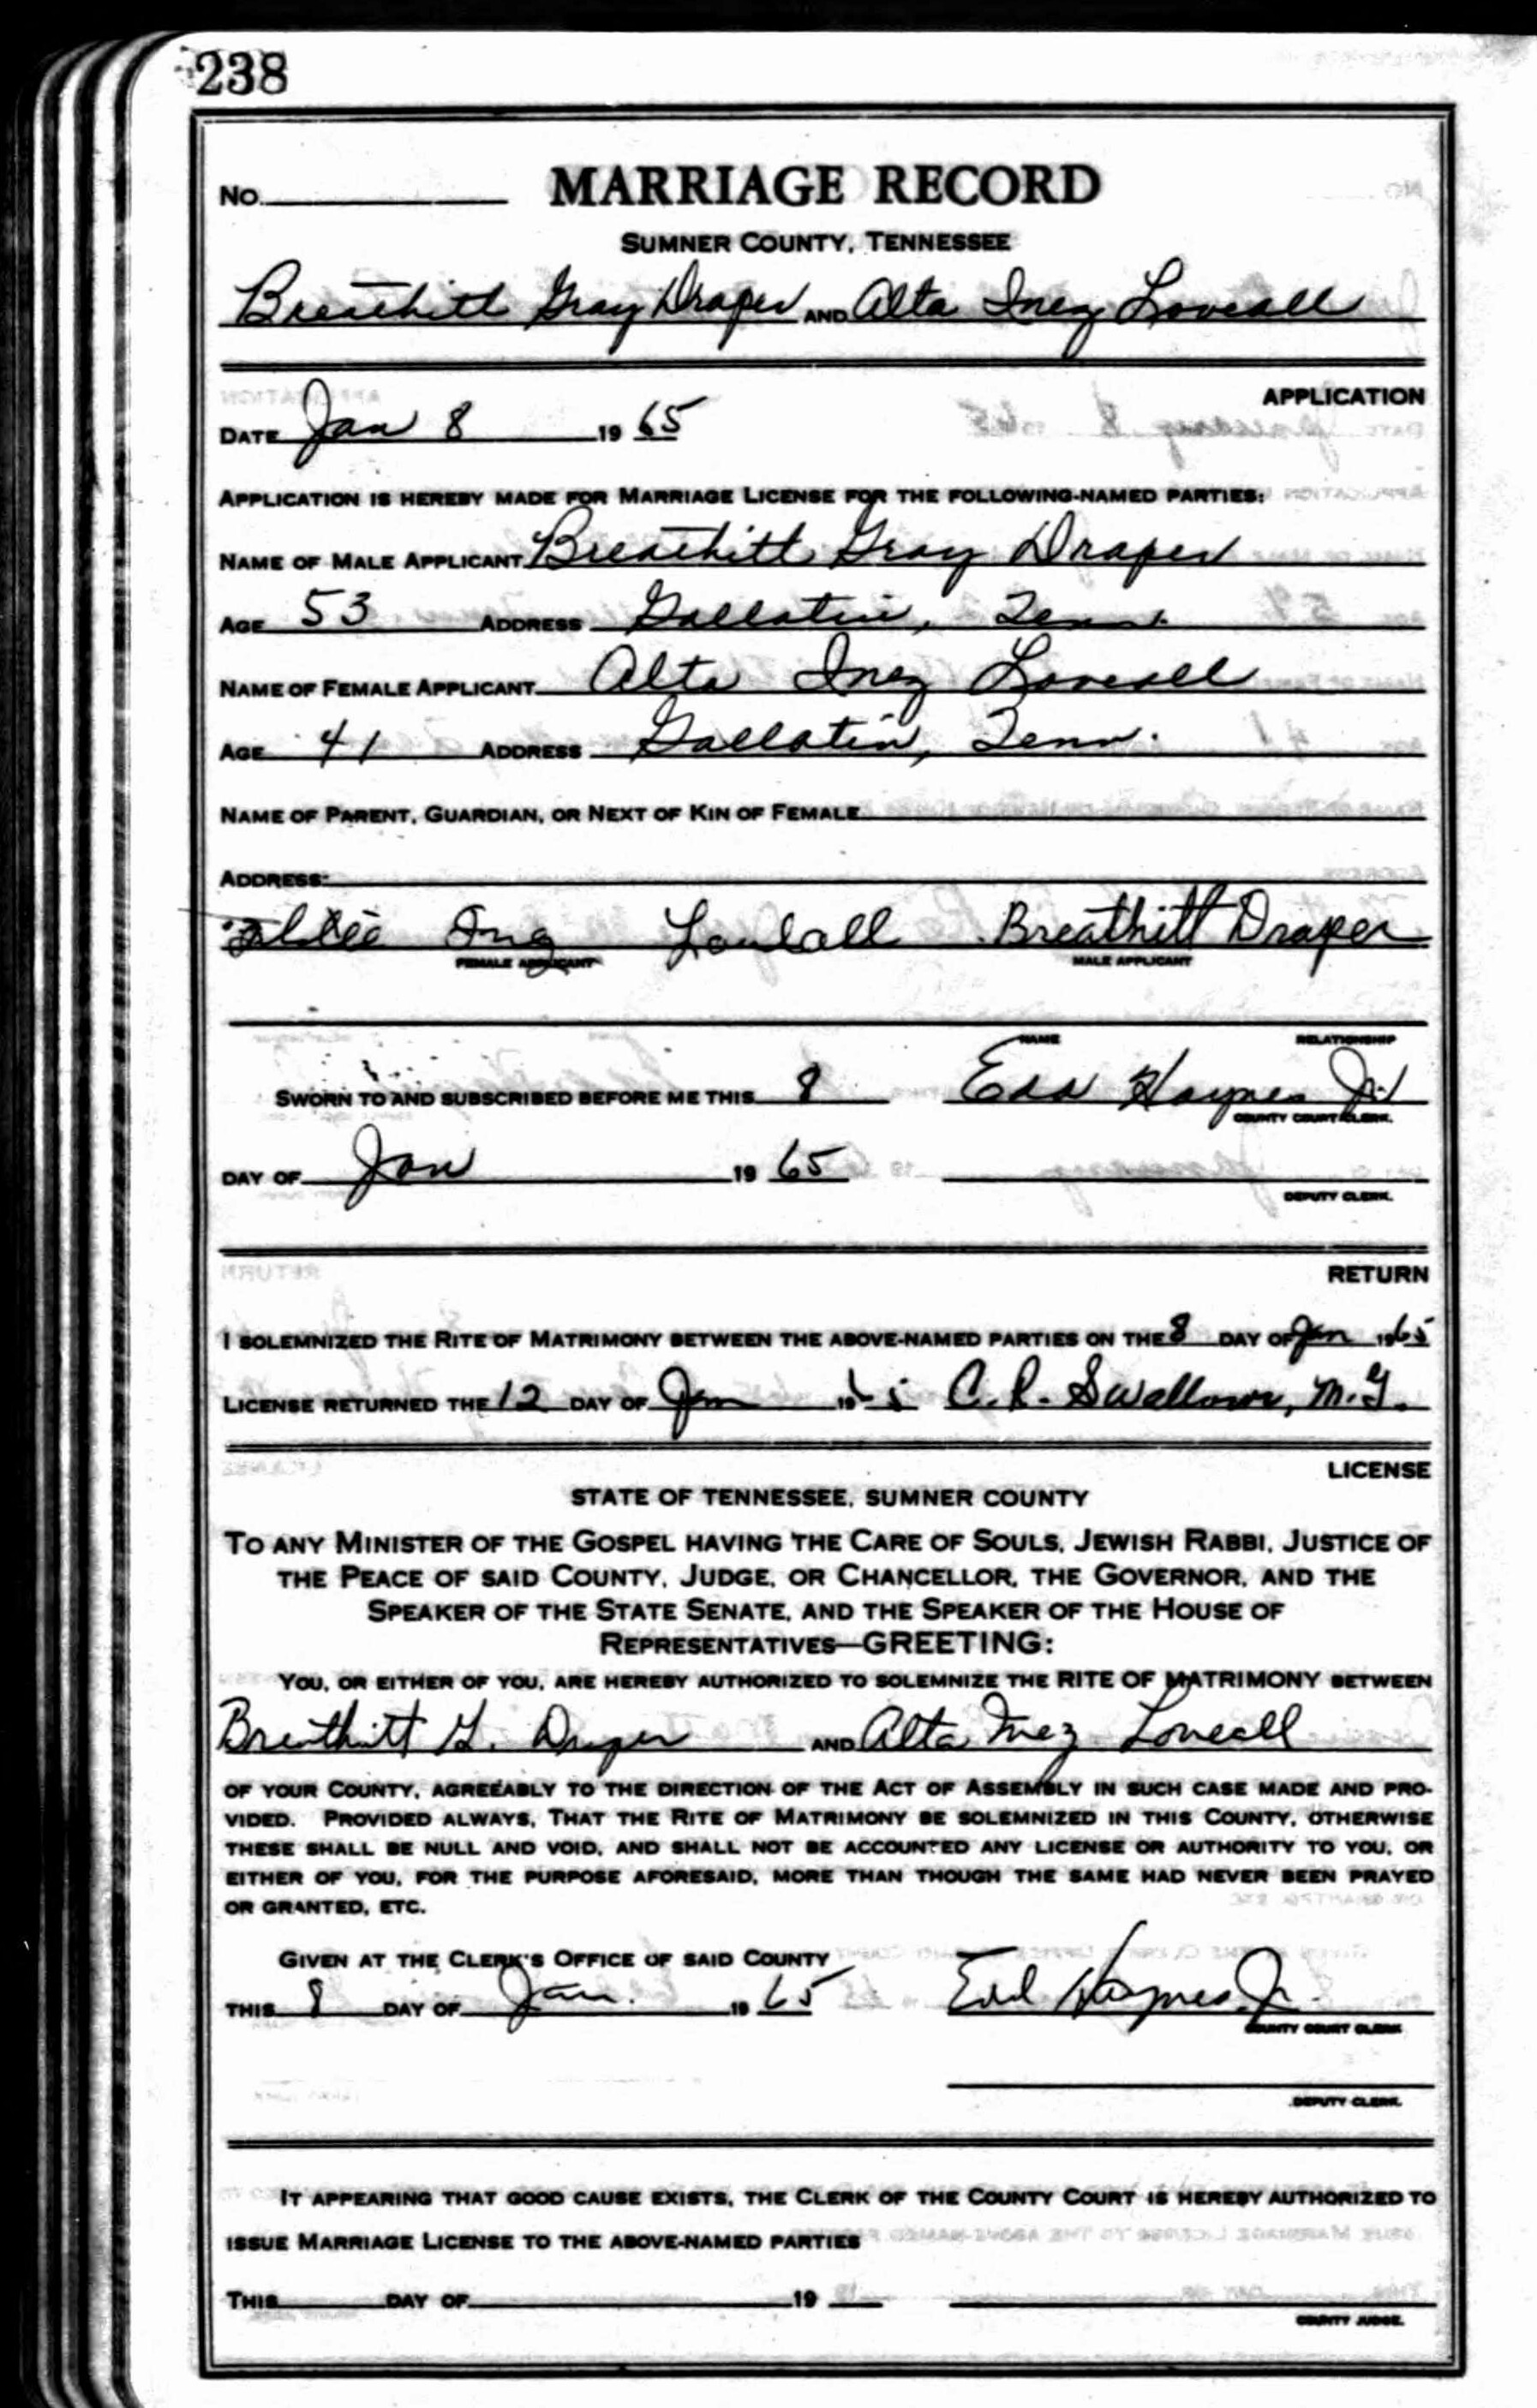 238
No. MARRIAGE RECORD
SUMNER COUNTY, TENNESSEE
Breathitt Gray Draper AND Alta Inez Loveall
APPLICATION
DATE Jan 8 19 65
APPLICATION IS HEREBY MADE FOR MARRIAGE LICENSE FOR THE FOLLOWING-NAMED PARTIES:
NAME OF MALE APPLICANT Breathitt Gray Draper
AGE 53 ADDRESS Gallatin, Tenn.
NAME OF FEMALE APPLICANT Alta Inez Loveall
AGE 41 ADDRESS Gallatin, Tenn.
NAME OF PARENT, GUARDIAN, OR NEXT OF KIN OF FEMALE
ADDRESS
Breathitt Draper
FEMALE APPLICANT MALE APPLICANT
NAME RELATIONSHIP
SWORN TO AND SUBSCRIBED BEFORE ME THIS 8 Edd Haynes Jr
COUNTY COURT CLERK.
DAY OF Jan 19 65
DEPUTY CLERK.
RETURN
I SOLEMNIZED THE RITE OF MATRIMONY BETWEEN THE ABOVE-NAMED PARTIES ON THE 8 DAY OF Jan 19 65
LICENSE RETURNED THE 12 DAY OF Jan 19 65 C. R. Swallows, M.G.
LICENSE
STATE OF TENNESSEE, SUMNER COUNTY
TO ANY MINISTER OF THE GOSPEL HAVING THE CARE OF SOULS, JEWISH RABBI, JUSTICE OF
THE PEACE OF SAID COUNTY, JUDGE, OR CHANCELLOR, THE GOVERNOR, AND THE
SPEAKER OF THE STATE SENATE, AND THE SPEAKER OF THE HOUSE OF
REPRESENTATIVES—GREETING:
YOU, OR EITHER OF YOU, ARE HEREBY AUTHORIZED TO SOLEMNIZE THE RITE OF MATRIMONY BETWEEN
Breathitt G. Draper AND Alta Inez Loveall
OF YOUR COUNTY, AGREEABLY TO THE DIRECTION OF THE ACT OF ASSEMBLY IN SUCH CASE MADE AND PRO-
VIDED. PROVIDED ALWAYS, THAT THE RITE OF MATRIMONY BE SOLEMNIZED IN THIS COUNTY, OTHERWISE
THESE SHALL BE NULL AND VOID, AND SHALL NOT BE ACCOUNTED ANY LICENSE OR AUTHORITY TO YOU, OR
EITHER OF YOU, FOR THE PURPOSE AFORESAID, MORE THAN THOUGH THE SAME HAD NEVER BEEN PRAYED
OR GRANTED, ETC.
GIVEN AT THE CLERK'S OFFICE OF SAID COUNTY
THIS 8 DAY OF Jan. 19 65 Edd Haynes Jr.
COUNTY COURT CLERK
DEPUTY CLERK.
IT APPEARING THAT GOOD CAUSE EXISTS, THE CLERK OF THE COUNTY COURT IS HEREBY AUTHORIZED TO
ISSUE MARRIAGE LICENSE TO THE ABOVE-NAMED PARTIES
THIS DAY OF 19
COUNTY JUDGE.